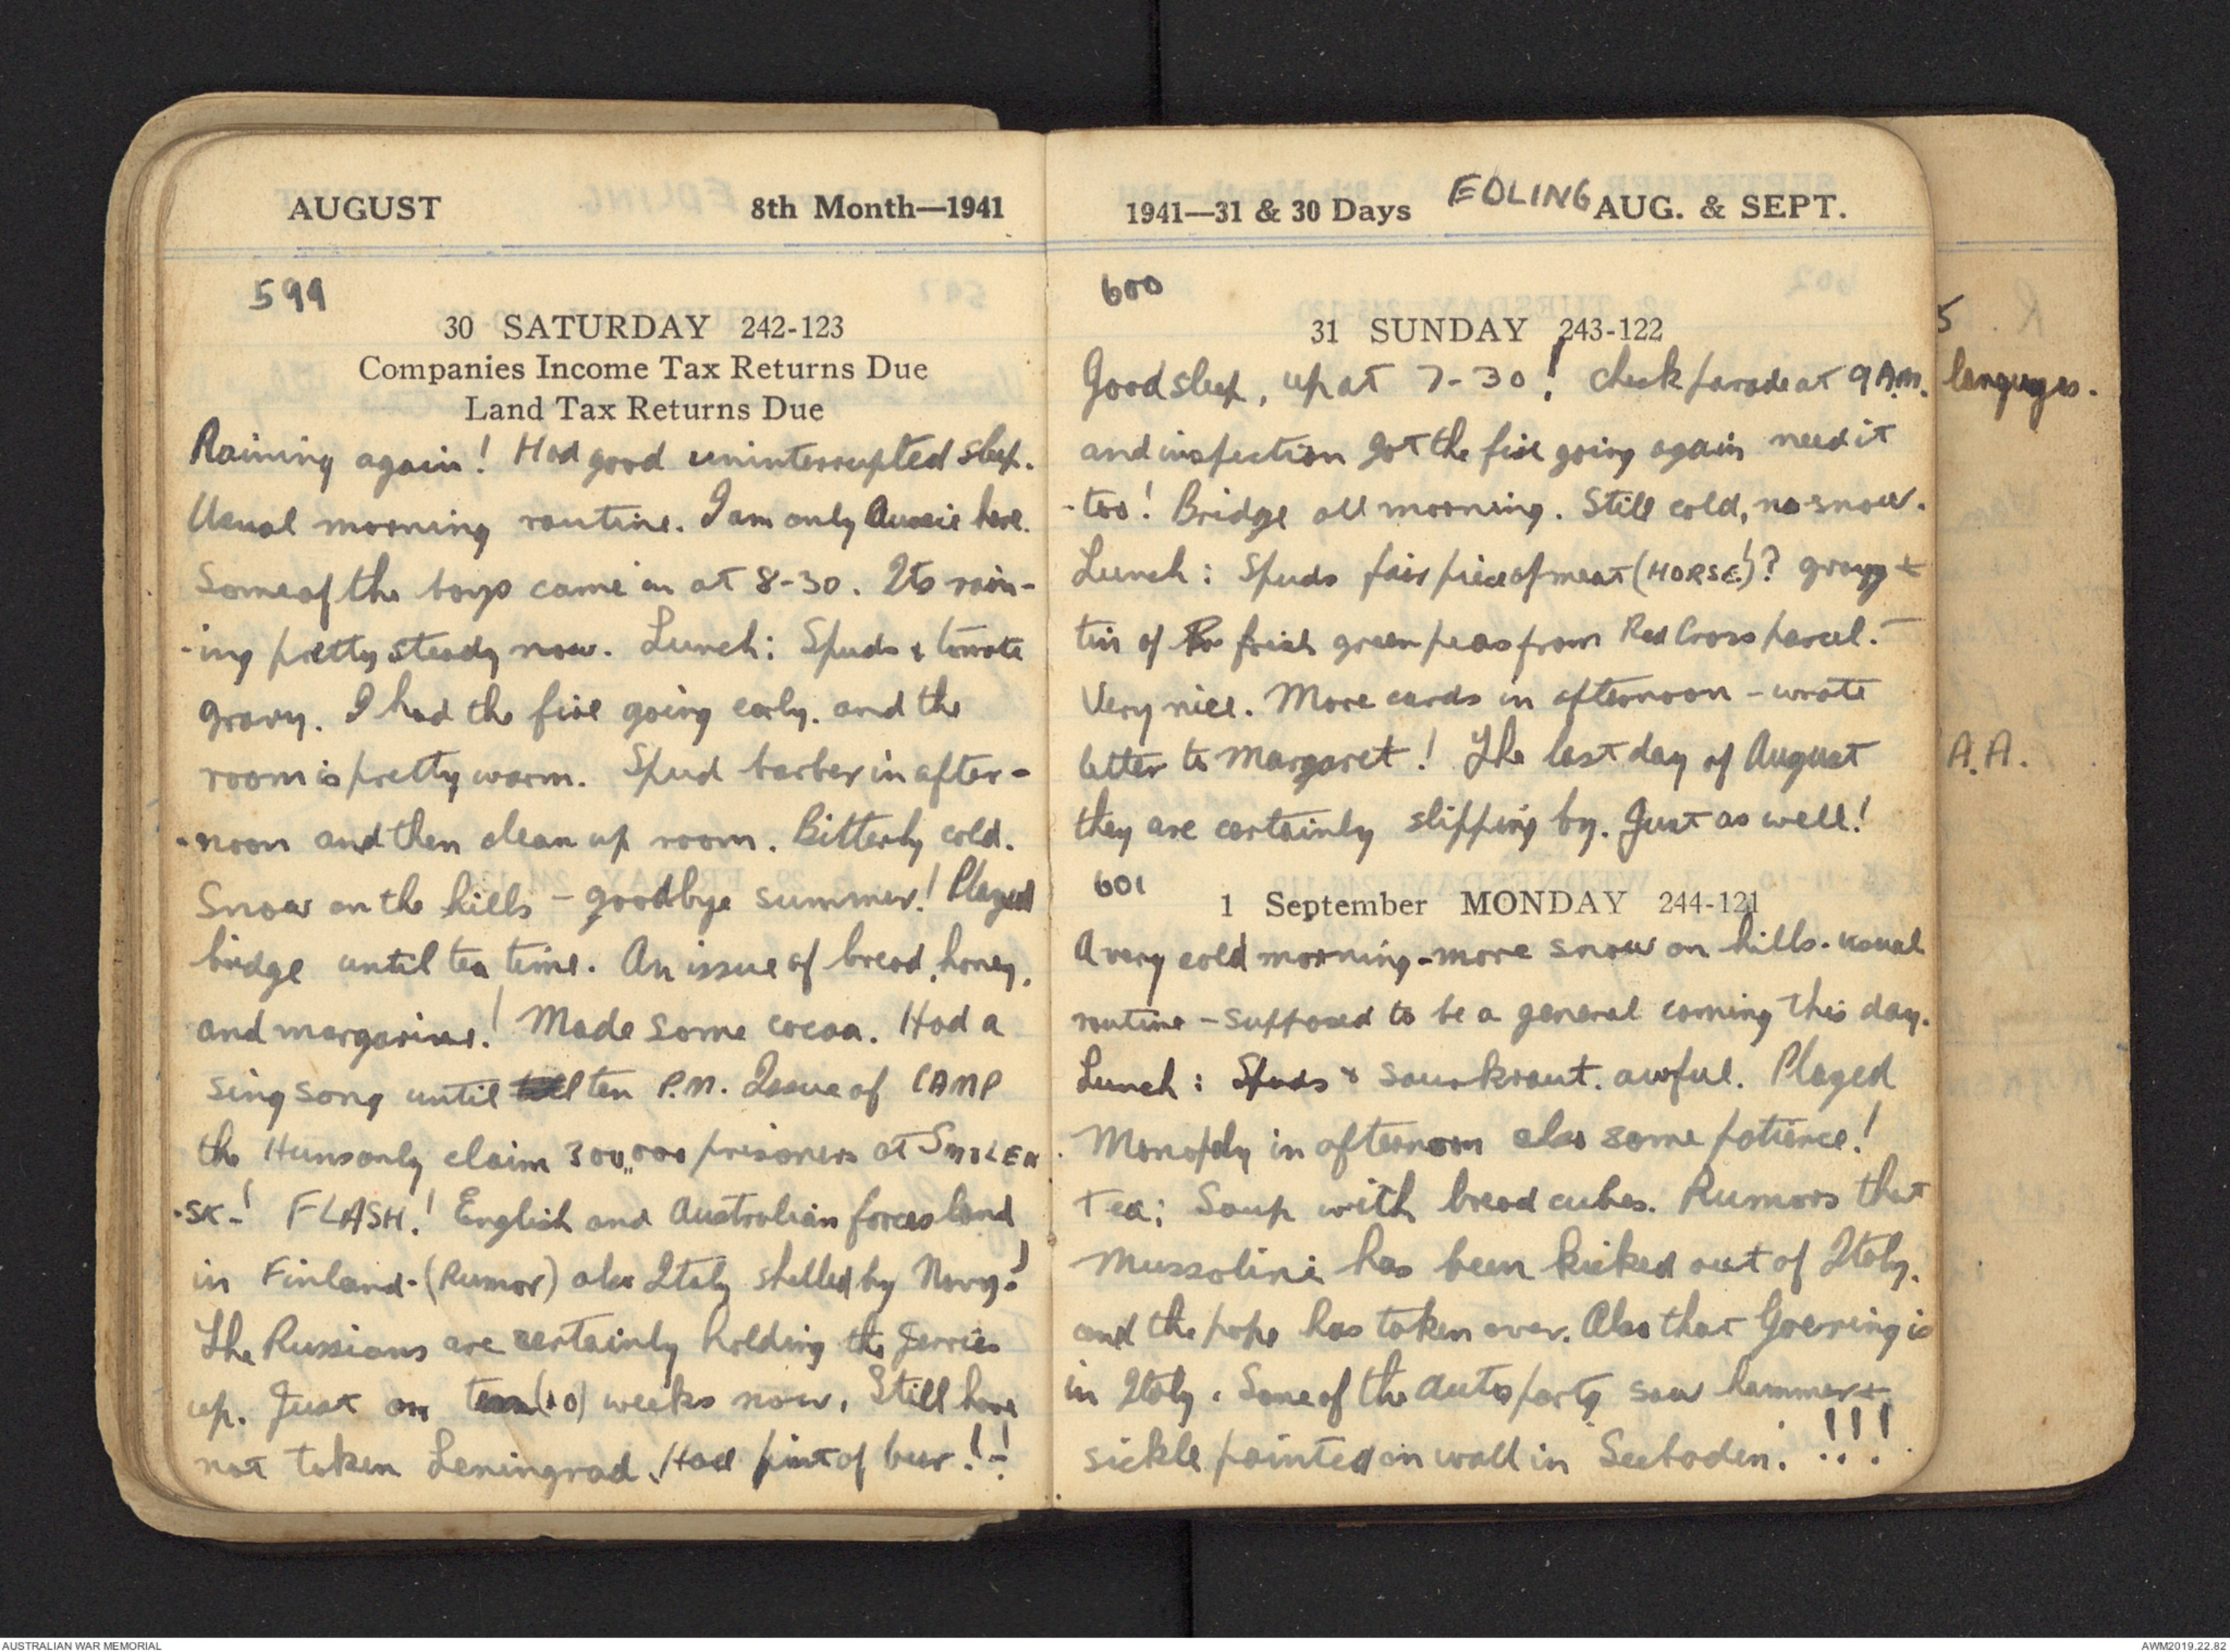 AUGUST 8th Month—1941
599
30 SATURDAY 242-123
Companies Income Tax Returns Due
Land Tax Returns Due
Raining again! Had good uninterrupted sleep.
Usual morning routine. I am only Aussie here.
Some of the boys came in at 8-30. Its rain-
-ing pretty steady now. Lunch: Spuds & tomato
gravy. I had the fire going early. and the
room is pretty warm. Spud barber in after-
-noon and then clean up room. Bitterly cold.
Snow on the hills - goodbye summer! Played
bridge until tea time. An issue of bread, honey,
and margarine! Made some cocoa. Had a
sing song until ten P.M. Issue of CAMP
the Huns only claim 300,000 prisoners at SMOLEN
-SK-! FLASH! English and Australian forces land
in Finland-(Rumor) also Italy shelled by Navy!
The Russians are certainly holding the Jerries
up. Just on ten (10) weeks now. Still have
not taken Leningrad. Had pint of beer!-!
1941—31 & 30 Days EDLING AUG. & SEPT.
600
31 SUNDAY 243-122
Good sleep, up at 7-30! Check parade at 9 A.M.
and inspection got the fire going again need it
-too! Bridge all morning. Still cold, no snow.
Lunch: Spuds fair piece of meat (HORSE!)? gravy +
tin of fresh green peas from Red Cross parcel.-
Very nice. More cards in afternoon - wrote
letter to Margaret! The last day of August
they are certainly slipping by. Just as well!
601
1 September MONDAY 244-121
A very cold morning - more snow on hills. usual
routine - supposed to be a general coming this day.
Lunch: Spuds & sourkraut. awful. Played
Monopoly in afternoon also some patience!
Tea: Soup with bread cubes. Rumors that
Mussolini has been kicked out of Italy.
and the pope has taken over. Also that Goering is
in Italy. Some of the Autoparty saw hammer +
sickle painted on wall in Seeboden. !!!
5
languages.
A.A.
AUSTRALIAN WAR MEMORIAL
AWM2019.22.82